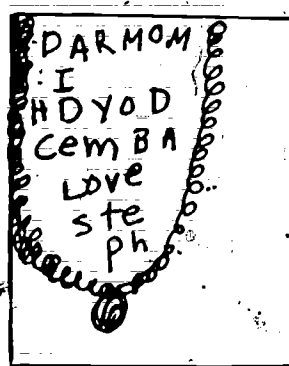 DARMOM
: I
HDYOD
cem BA
Love
ste
ph